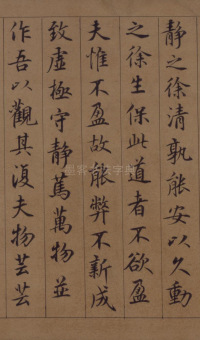 靜之徐清孰能安以久動
之徐生保此道者不欲盈
夫惟不盈故能弊不新成
致虛極守靜篤萬物並
作吾以觀其復夫物芸芸